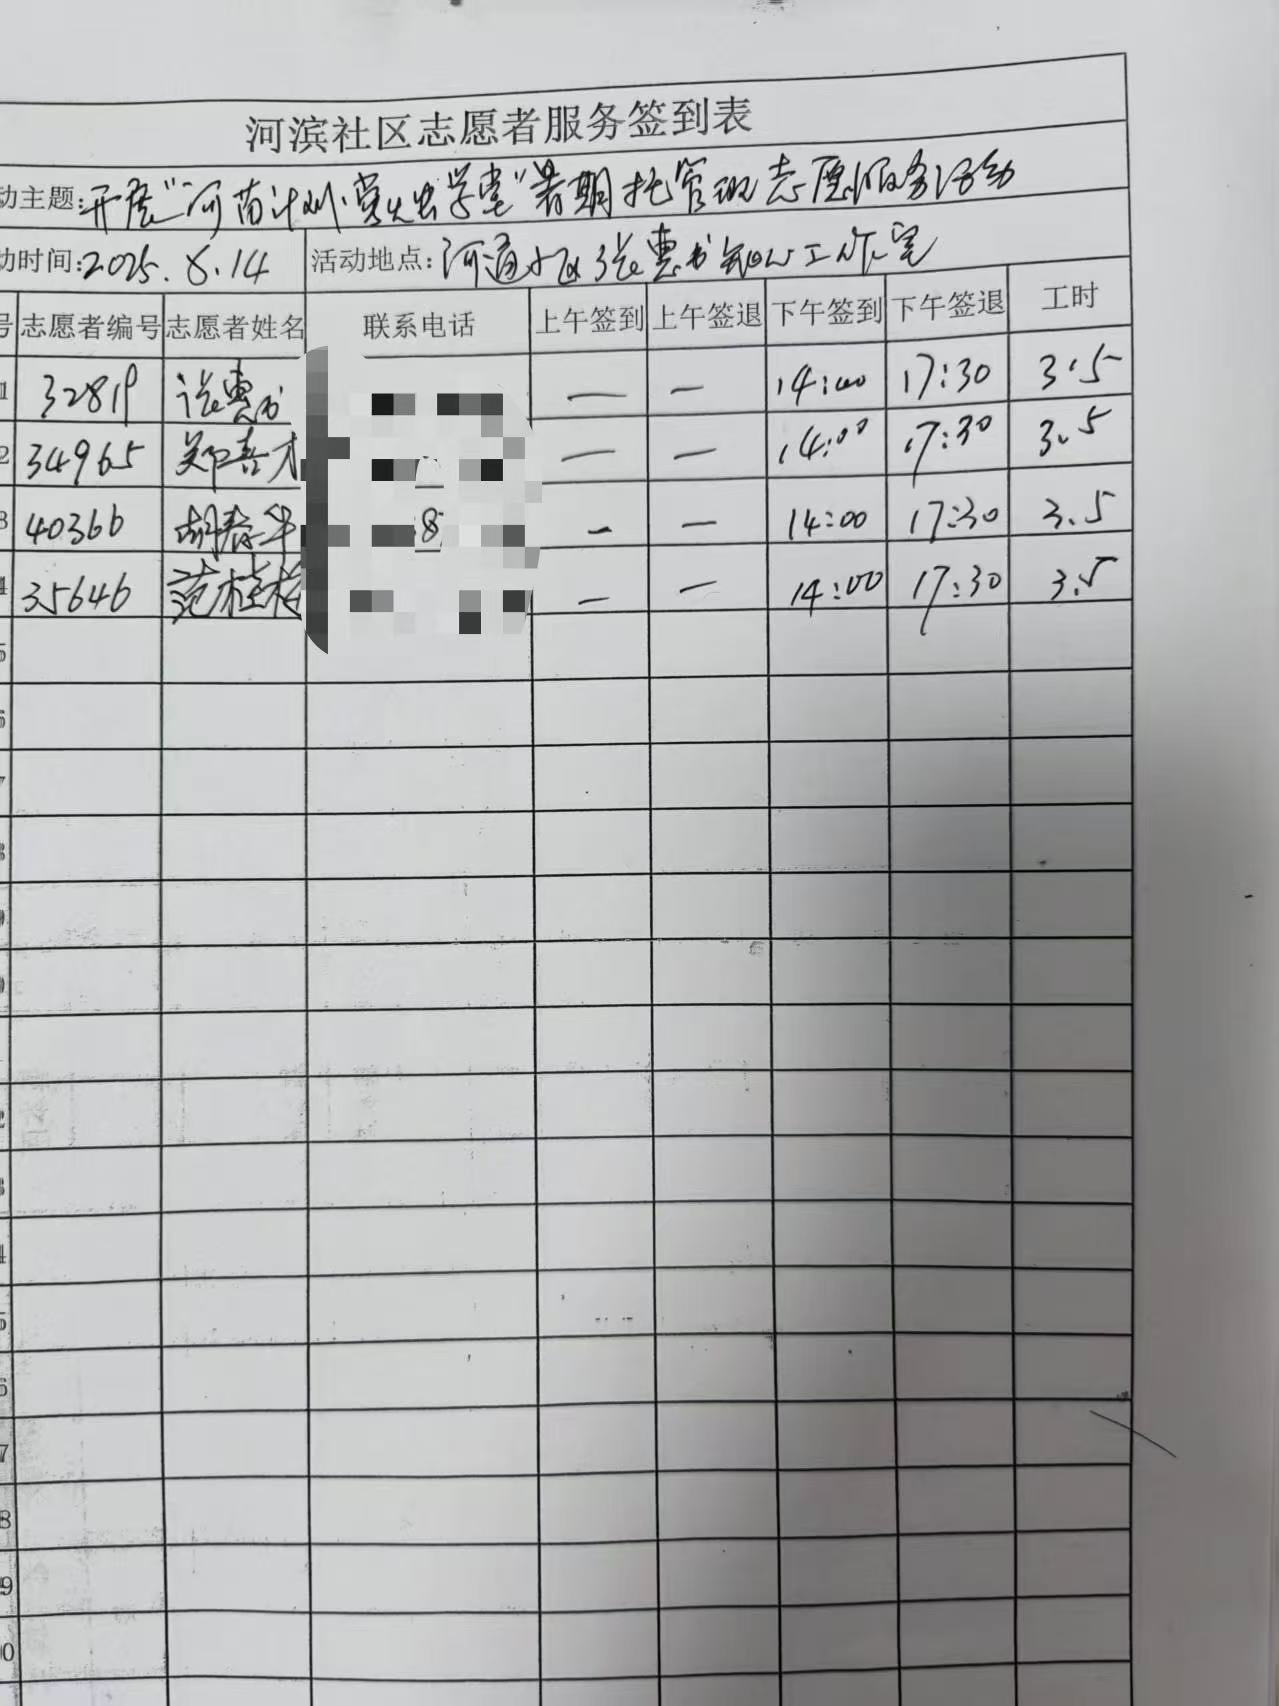 河滨社区志愿者服务签到表
动主题:开展"河苗计划·萤火虫学堂"暑期托管班志愿服务活动
动时间:2025.8.14 活动地点:河道社区张惠书知心工作室
号 志愿者编号 志愿者姓名 联系电话 上午签到 上午签退 下午签到 下午签退 工时
1 32819 张惠书 — — 14:00 17:30 3.5
2 34965 郑喜才 — — 14:00 17:30 3.5
3 40366 胡春华 8 — — 14:00 17:30 3.5
4 35646 范桂梅 — — 14:00 17:30 3.5
5
6
7
8
9
0
2
3
4
5
6
7
8
9
0